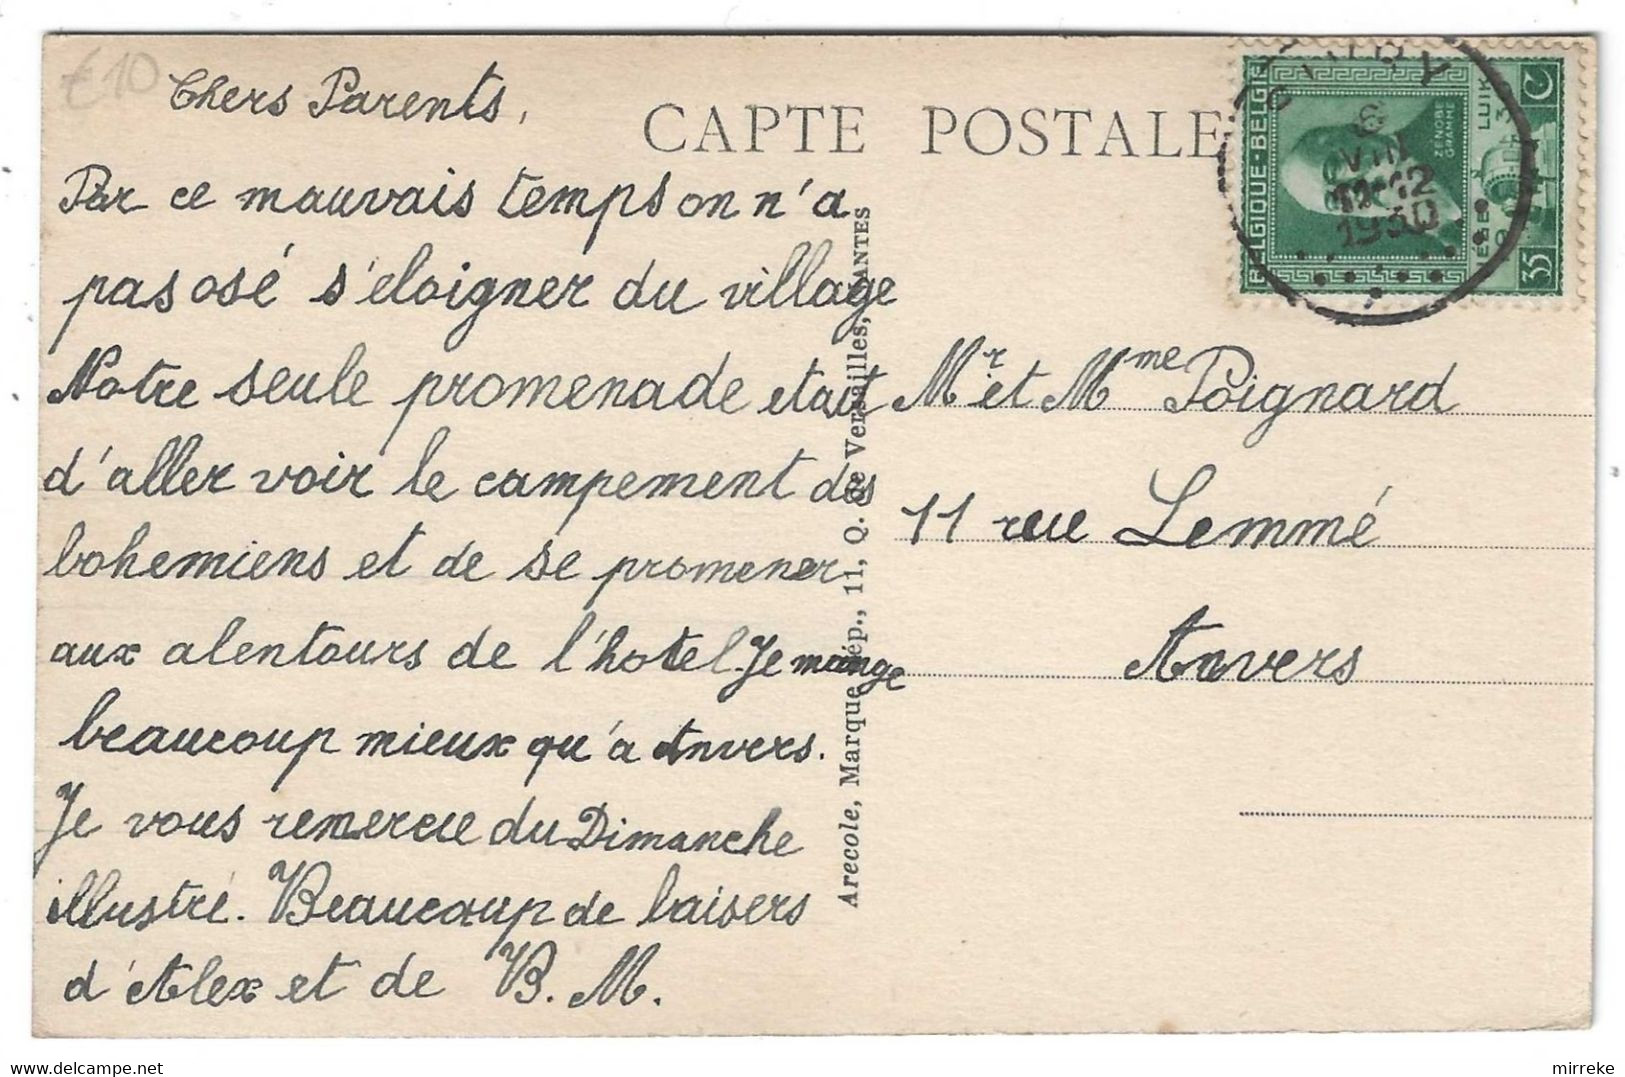 €10
Chers Parents,
Par ce mauvais temps on n'a
pas osé s'eloigner du village
Notre seule promenade etait
d'aller voir le campement des
bohemiens et de se promener
aux alentours de l'hotel. Je mange
beaucoup mieux qu'a Anvers.
Je vous remercie du Dimanche
illustré. Beaucoup de baisers
d'Alex et de B. M.
CAPTE POSTALE
Arecole, Marque dép., 11, Q. de Versailles, NANTES
BELGIQUE·BELGIË
ZENOBE
GRAMME
LUIK
LIÉGE
35 C
6
VIII
12
1930
Mr et Mme Poignard
11 rue Lemmé
Anvers
mirreke